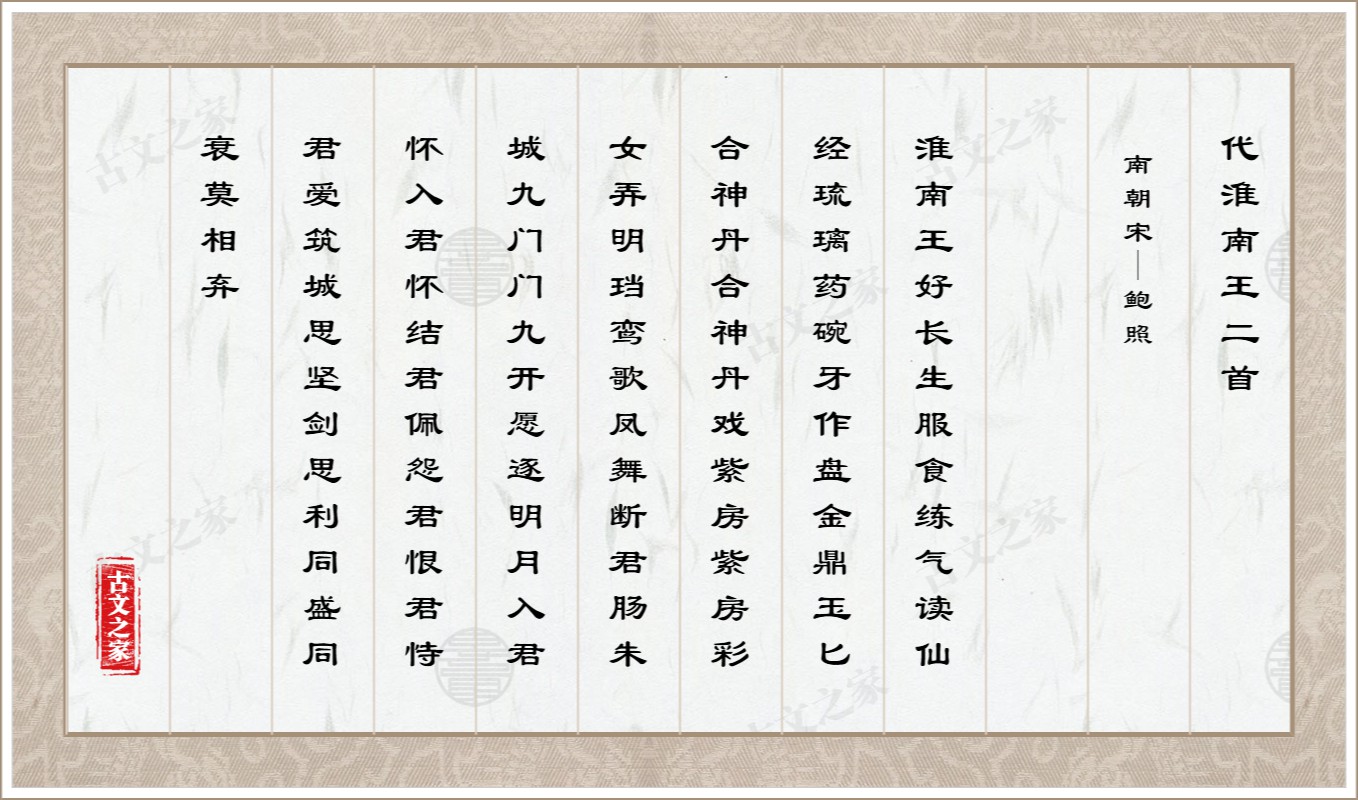 代淮南王二首
南朝宋—鲍照
淮南王好长生服食练气读仙
经琉璃药碗牙作盘金鼎玉匕
合神丹合神丹戏紫房紫房彩
女弄明珰鸾歌凤舞断君肠朱
城九门门九开愿逐明月入君
怀入君怀结君佩怨君恨君恃
君爱筑城思坚剑思利同盛同
衰莫相弃
古文之家